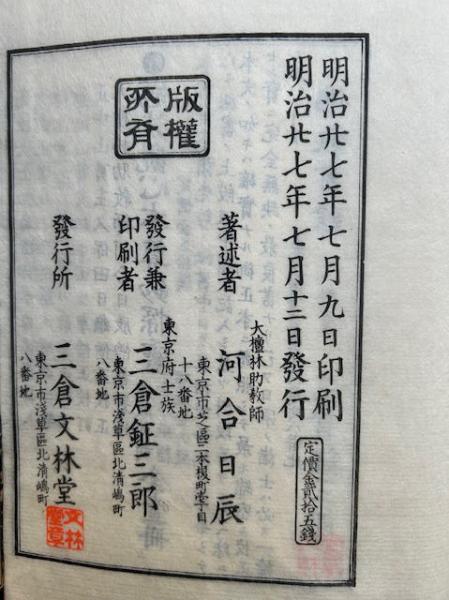 明治廿七年七月九日印刷
明治廿七年七月十二日發行
定價金貳拾五錢
版權
所有
大檀林助教師
著述者 河合日辰
東京市芝區二本榎町壹丁目
十八番地
東京府士族
發行兼
印刷者 三倉鉦三郎
東京市淺草區北清嶋町
八番地
發行所 三倉文林堂
東京市淺草區北清嶋町
八番地
文林
堂章